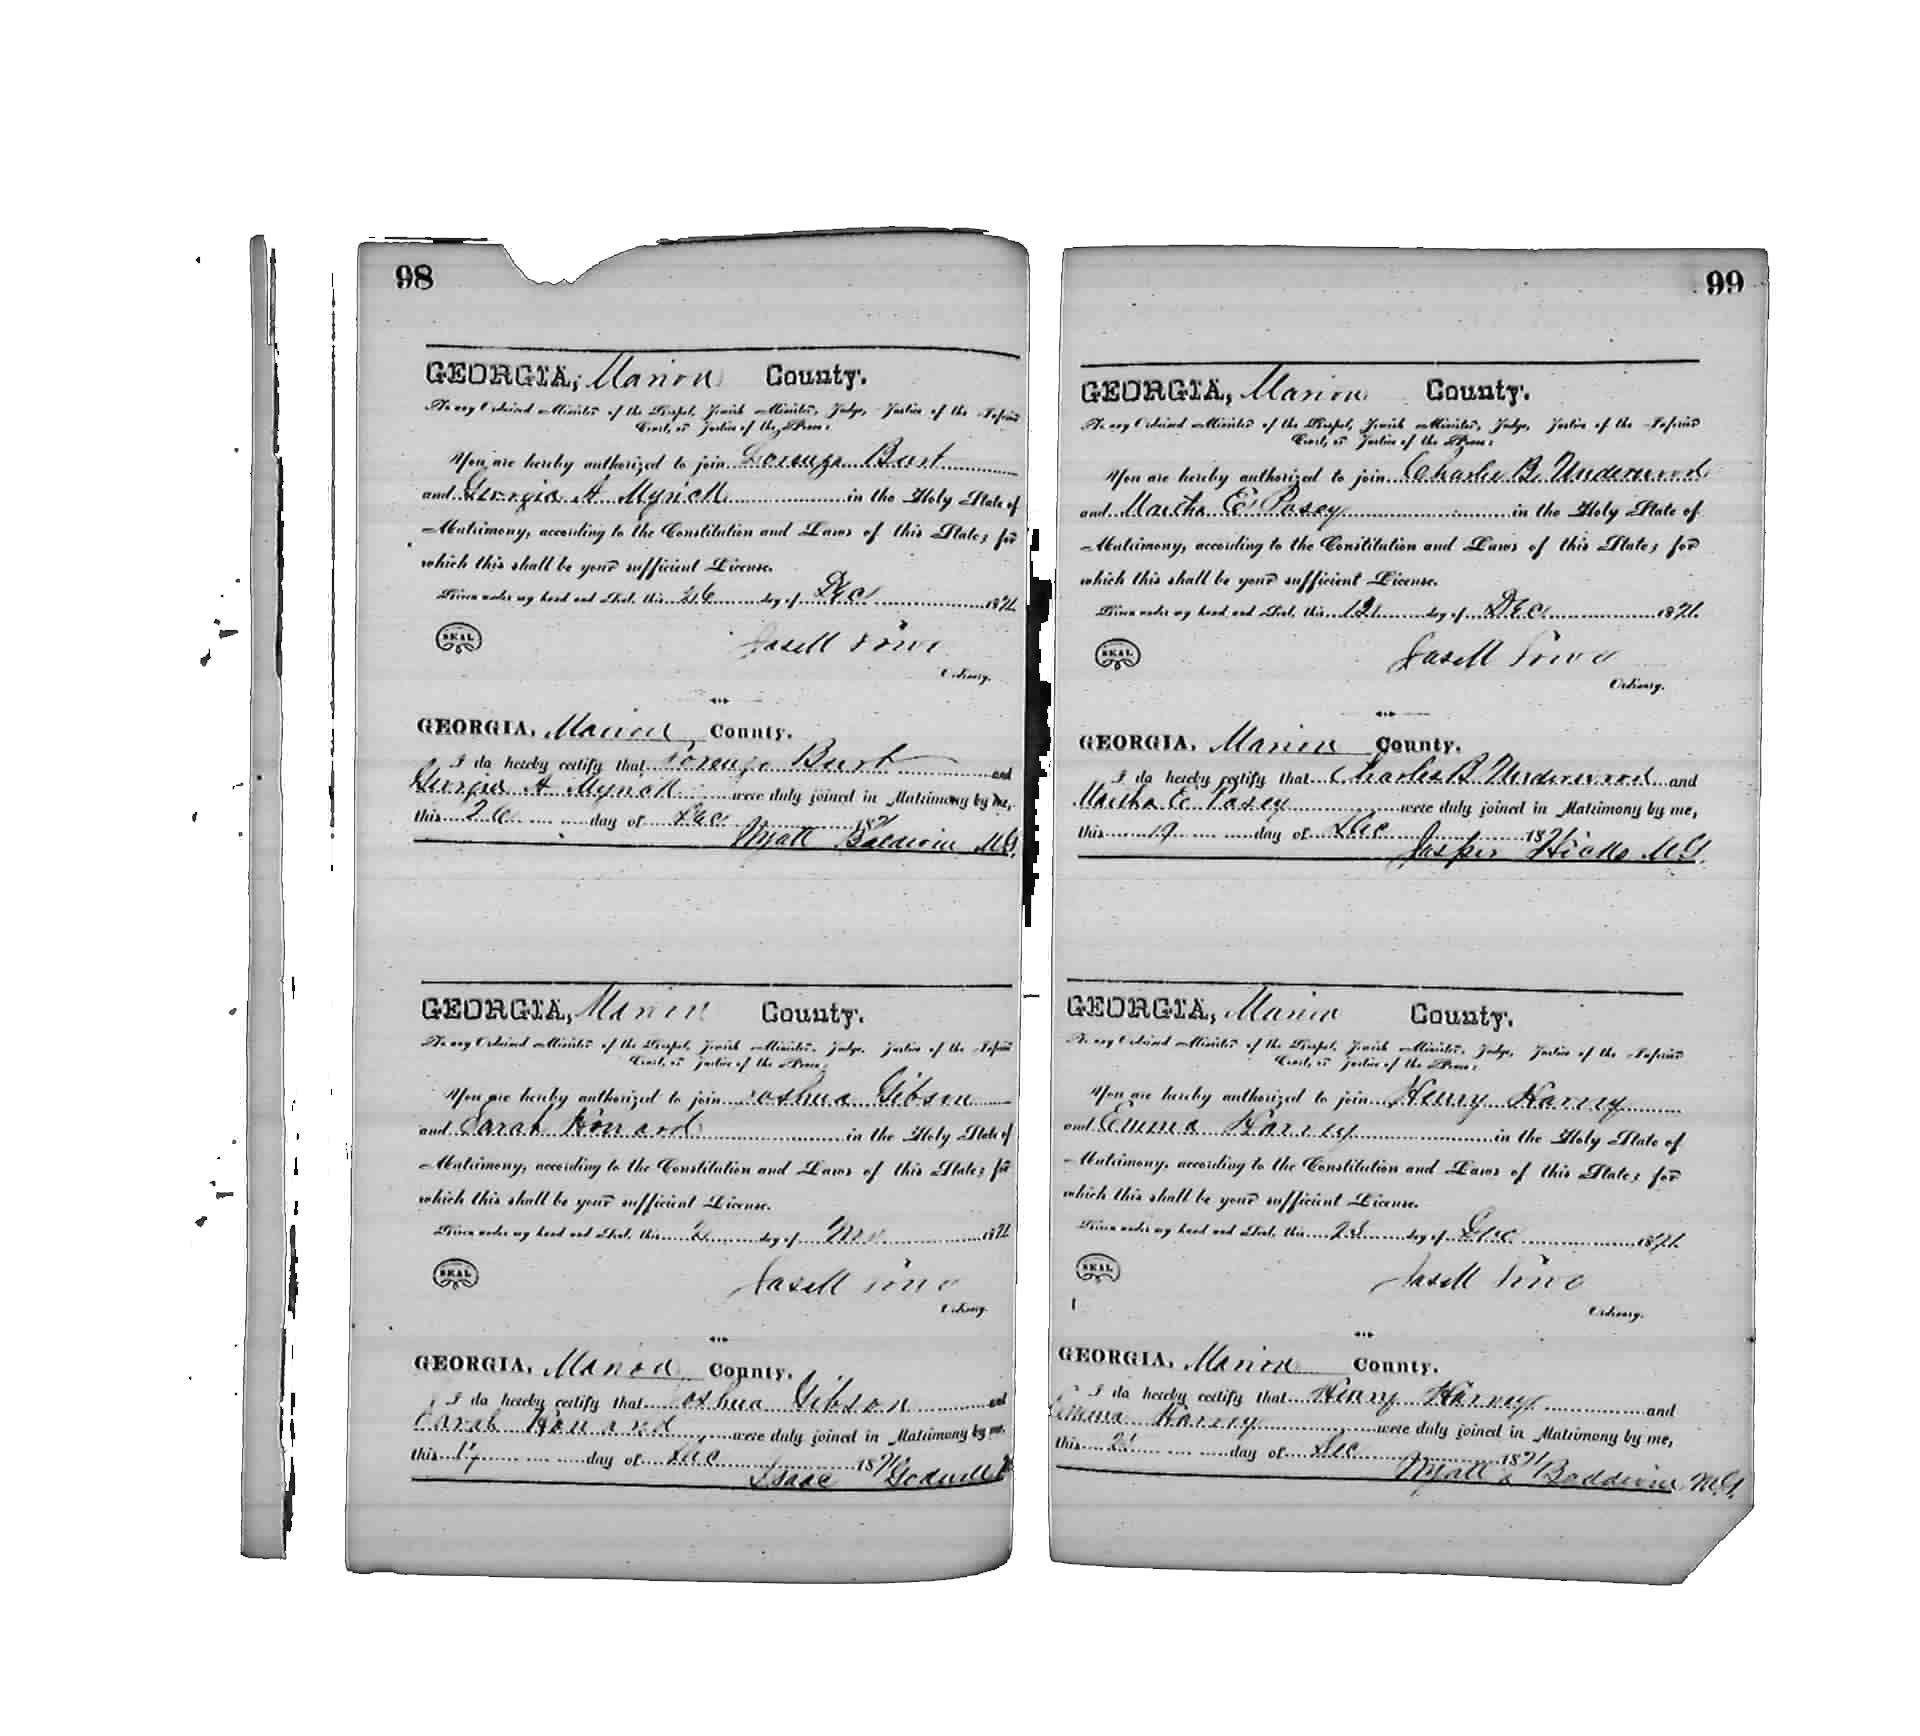 98
GEORGIA, Marion County.
To any Ordained Minister of the Gospel, Jewish Minister, Judge, Justice of the Inferior
Court, or Justice of the Peace:
You are hereby authorized to join Lorenzo Burt
and Georgia A Myrick in the Holy State of
Matrimony, according to the Constitution and Laws of this State; for
which this shall be your sufficient License.
Given under my hand and Seal, this 26 day of Dec 1871.
SEAL
Jas M Lowe
Ordinary.
GEORGIA, Marion County.
I do hereby certify that Lorenzo Burt and
Georgia A Myrick were duly joined in Matrimony by me,
this 26 day of Dec 1871
Wyatt Baldwin M.G.
GEORGIA, Marion County.
To any Ordained Minister of the Gospel, Jewish Minister, Judge, Justice of the Inferior
Court, or Justice of the Peace:
You are hereby authorized to join Joshua Gibson
and Sarah Howard in the Holy State of
Matrimony, according to the Constitution and Laws of this State; for
which this shall be your sufficient License.
Given under my hand and Seal, this 2 day of Nov 1871.
SEAL
Jas M Lowe
Ordinary.
GEORGIA, Marion County.
I do hereby certify that Joshua Gibson and
Sarah Howard were duly joined in Matrimony by me,
this 17 day of Dec 1871
Isaac
99
GEORGIA, Marion County.
To any Ordained Minister of the Gospel, Jewish Minister, Judge, Justice of the Inferior
Court, or Justice of the Peace:
You are hereby authorized to join Charlie B. Underwood
and Martha E. Posey in the Holy State of
Matrimony, according to the Constitution and Laws of this State; for
which this shall be your sufficient License.
Given under my hand and Seal, this 12 day of Dec 1871.
SEAL
Jas M Lowe
Ordinary.
GEORGIA, Marion County.
I do hereby certify that Charles B Underwood and
Martha E Posey were duly joined in Matrimony by me,
this 19 day of Dec 1871
Jasper Hicks M.G.
GEORGIA, Marion County.
To any Ordained Minister of the Gospel, Jewish Minister, Judge, Justice of the Inferior
Court, or Justice of the Peace:
You are hereby authorized to join Henry Harvey
and Emma Harvey in the Holy State of
Matrimony, according to the Constitution and Laws of this State; for
which this shall be your sufficient License.
Given under my hand and Seal, this day of Dec 1871.
SEAL
Jas M Lowe
Ordinary.
GEORGIA, Marion County.
I do hereby certify that Henry Harvey and
Emma Harvey were duly joined in Matrimony by me,
this day of Dec 1871
Wyatt Baldwin M.G.